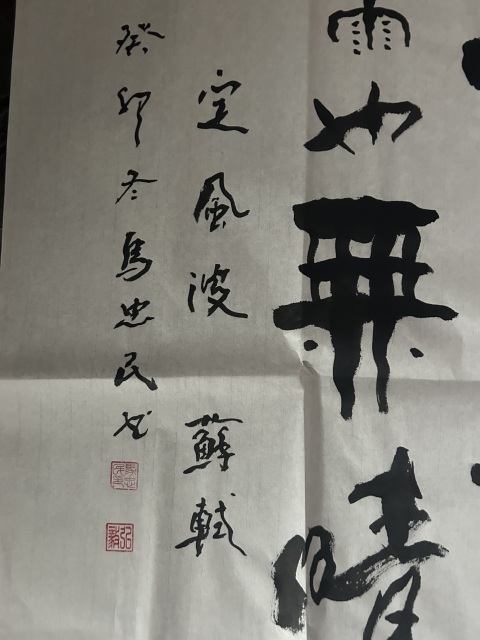 雨也無晴
定風波 蘇軾
癸卯冬馬忠民书